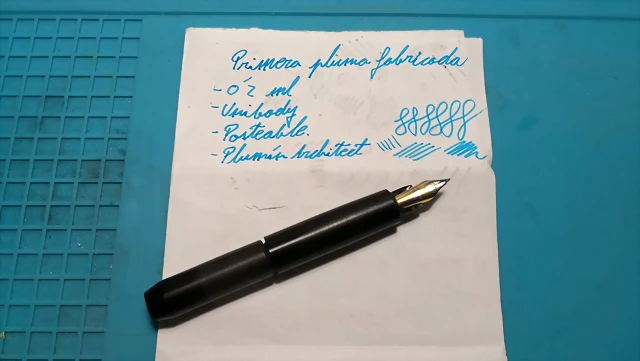 Primera pluma fabricada
- 0'2 ml
- Unibody
- Posteable.
- Plumín Architect